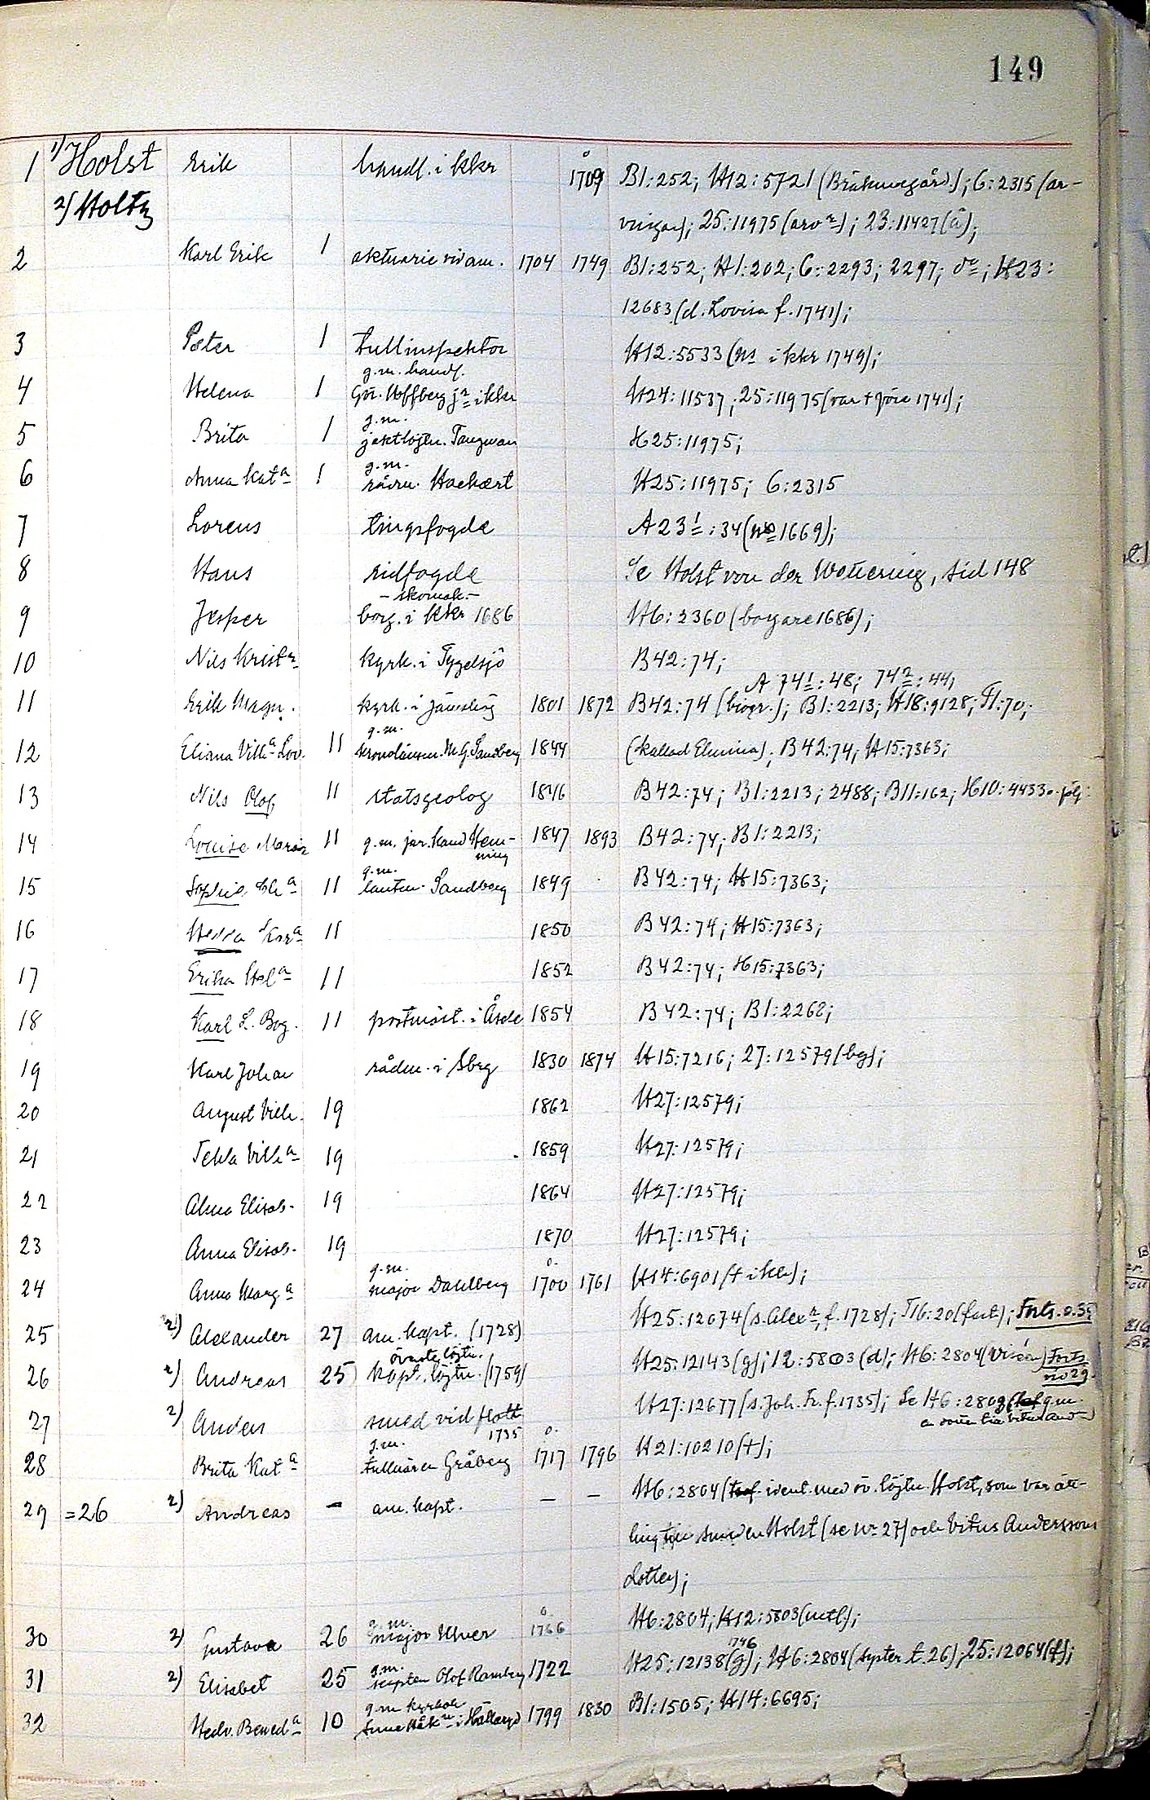 149
1 1) Holst Erik handl. i kkr å 1709 B1:252; H12:5721 (Bräkneegård); G:2315 (ar-
2) Holtz vingar); 25:11975 (arv=); 23:11427 (å);
2 Karl Erik 1 aktuarie vid am. 1704 1749 B1:252; H1:202; G:2293; 2297; H23:
12683 (d. Lovisa f. 1741);
3 Peter 1 tullinspektor H12:5533 (i kkr 1749);
g.m. handl.
4 Helena 1 Gör. Hoffberg jr i kkr H24:11537; 25:11975 (var † före 1741);
g.m.
5 Brita 1 H25:11975;
g.m.
6 Anna Kata 1 rådm. H25:11975; G:2315
7 Lorens tingsfogde A231:34 (1669);
8 Hans ridfogde Se Holst von der Wettering, sid 148
– skomak. –
9 Jesper borg. i kkr 1686 H6:2360 (borgare 1686);
10 Nils Krist kyrk. i Tygelsjö B42:74;
A 741:48; 742:44;
11 Erik Magn. kyrk. i Jämshög 1801 1872 B42:74 (biogr.); B1:2213; H18:9128; F1:70;
g.m.
12 Eliana Vilha Lov. 11 kronolänsm. M.G. Sandberg 1844 (kallad Elmina); B42:74; H15:7363;
13 Nils Olof 11 statsgeolog 1846 B42:74; B1:2213; 2488; B11:162; H10:4433 o. följ.
14 Louise Maria 11 g.m. jur. kand Hem- 1847 1893 B42:74; B1:2213;
ming
g.m.
15 Sophie 11 lantm. Sandberg 1849 B42:74; H15:7363;
16 Hedda 11 1850 B42:74; H15:7363;
17 Erika 11 1852 B42:74; H15:7363;
18 Karl L. Bog. 11 postmäst. i Åseda 1854 B42:74; B1:2262;
19 Karl Johan rådm. i Sbrg 1830 1874 H15:7216; 27:12579 (bg);
20 August Vilh. 19 1862 H27:12579;
21 Tekla Vilha 19 1859 H27:12579;
22 Alma Elisab. 19 1864 H27:12579;
23 Anna Elisab. 19 1870 H27:12579;
g.m.
24 Anna Marga major Dahlberg o. 1700 1761 H14:6901 († i kkr);
25 2) Alexander 27 am. kapt. (1728) H25:12074 (s. Alexr f. 1728); 716:20 (fört); Forts. o. 35
överste löjtn.
26 2) Andreas 25 kapt. löjtn. (1759) H25:12143 (g); 12:5803 (d); H6:2804 (visén) Forts
no 29.
27 2) Anders smed vid flott 1735 H27:12677 (s. Joh. Fr. f. 1735); Se H6:2803 g.m.
g.m.
28 Brita Kata tullnären Gråberg o. 1717 1796 H21:10210 (†);
29 =26 2) Andreas – am. kapt. – – H6:2804 (ident. med öv. löjtn. Holst, som var ätt-
ling till smeden Holst (se no 27) och Vitus Anderssons
dotter);
30 2) Gustava 26 g.m. major å 1766 H6:2804; H12:5803 (utf);
1746
31 2) Elisabet 25 g.m. kapten Olof Ramberg 1722 H25:12138 (g); H6:2804 (syster t. 26); 25:12064 (†);
g.m. kyrkoh.
32 Hedv. Beneda 10 i Hällaryd 1799 1830 B1:1505; H14:6695;